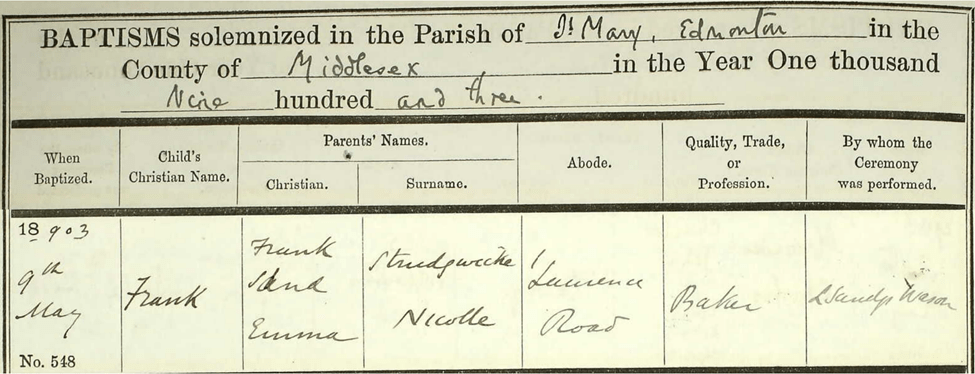 BAPTISMS solemnized in the Parish of St Mary, Edmonton in the
County of Middlesex in the Year One thousand
Nine hundred and three.
When Baptized.
Child's Christian Name.
Parents' Names.
Christian.
Surname.
Abode.
Quality, Trade, or Profession.
By whom the Ceremony was performed.
18 903
9th
May
No. 548
Frank
Frank
and
Emma
Strudgwicke
Nicolle
1 Laurence
Road
Baker
L Sandys Wason